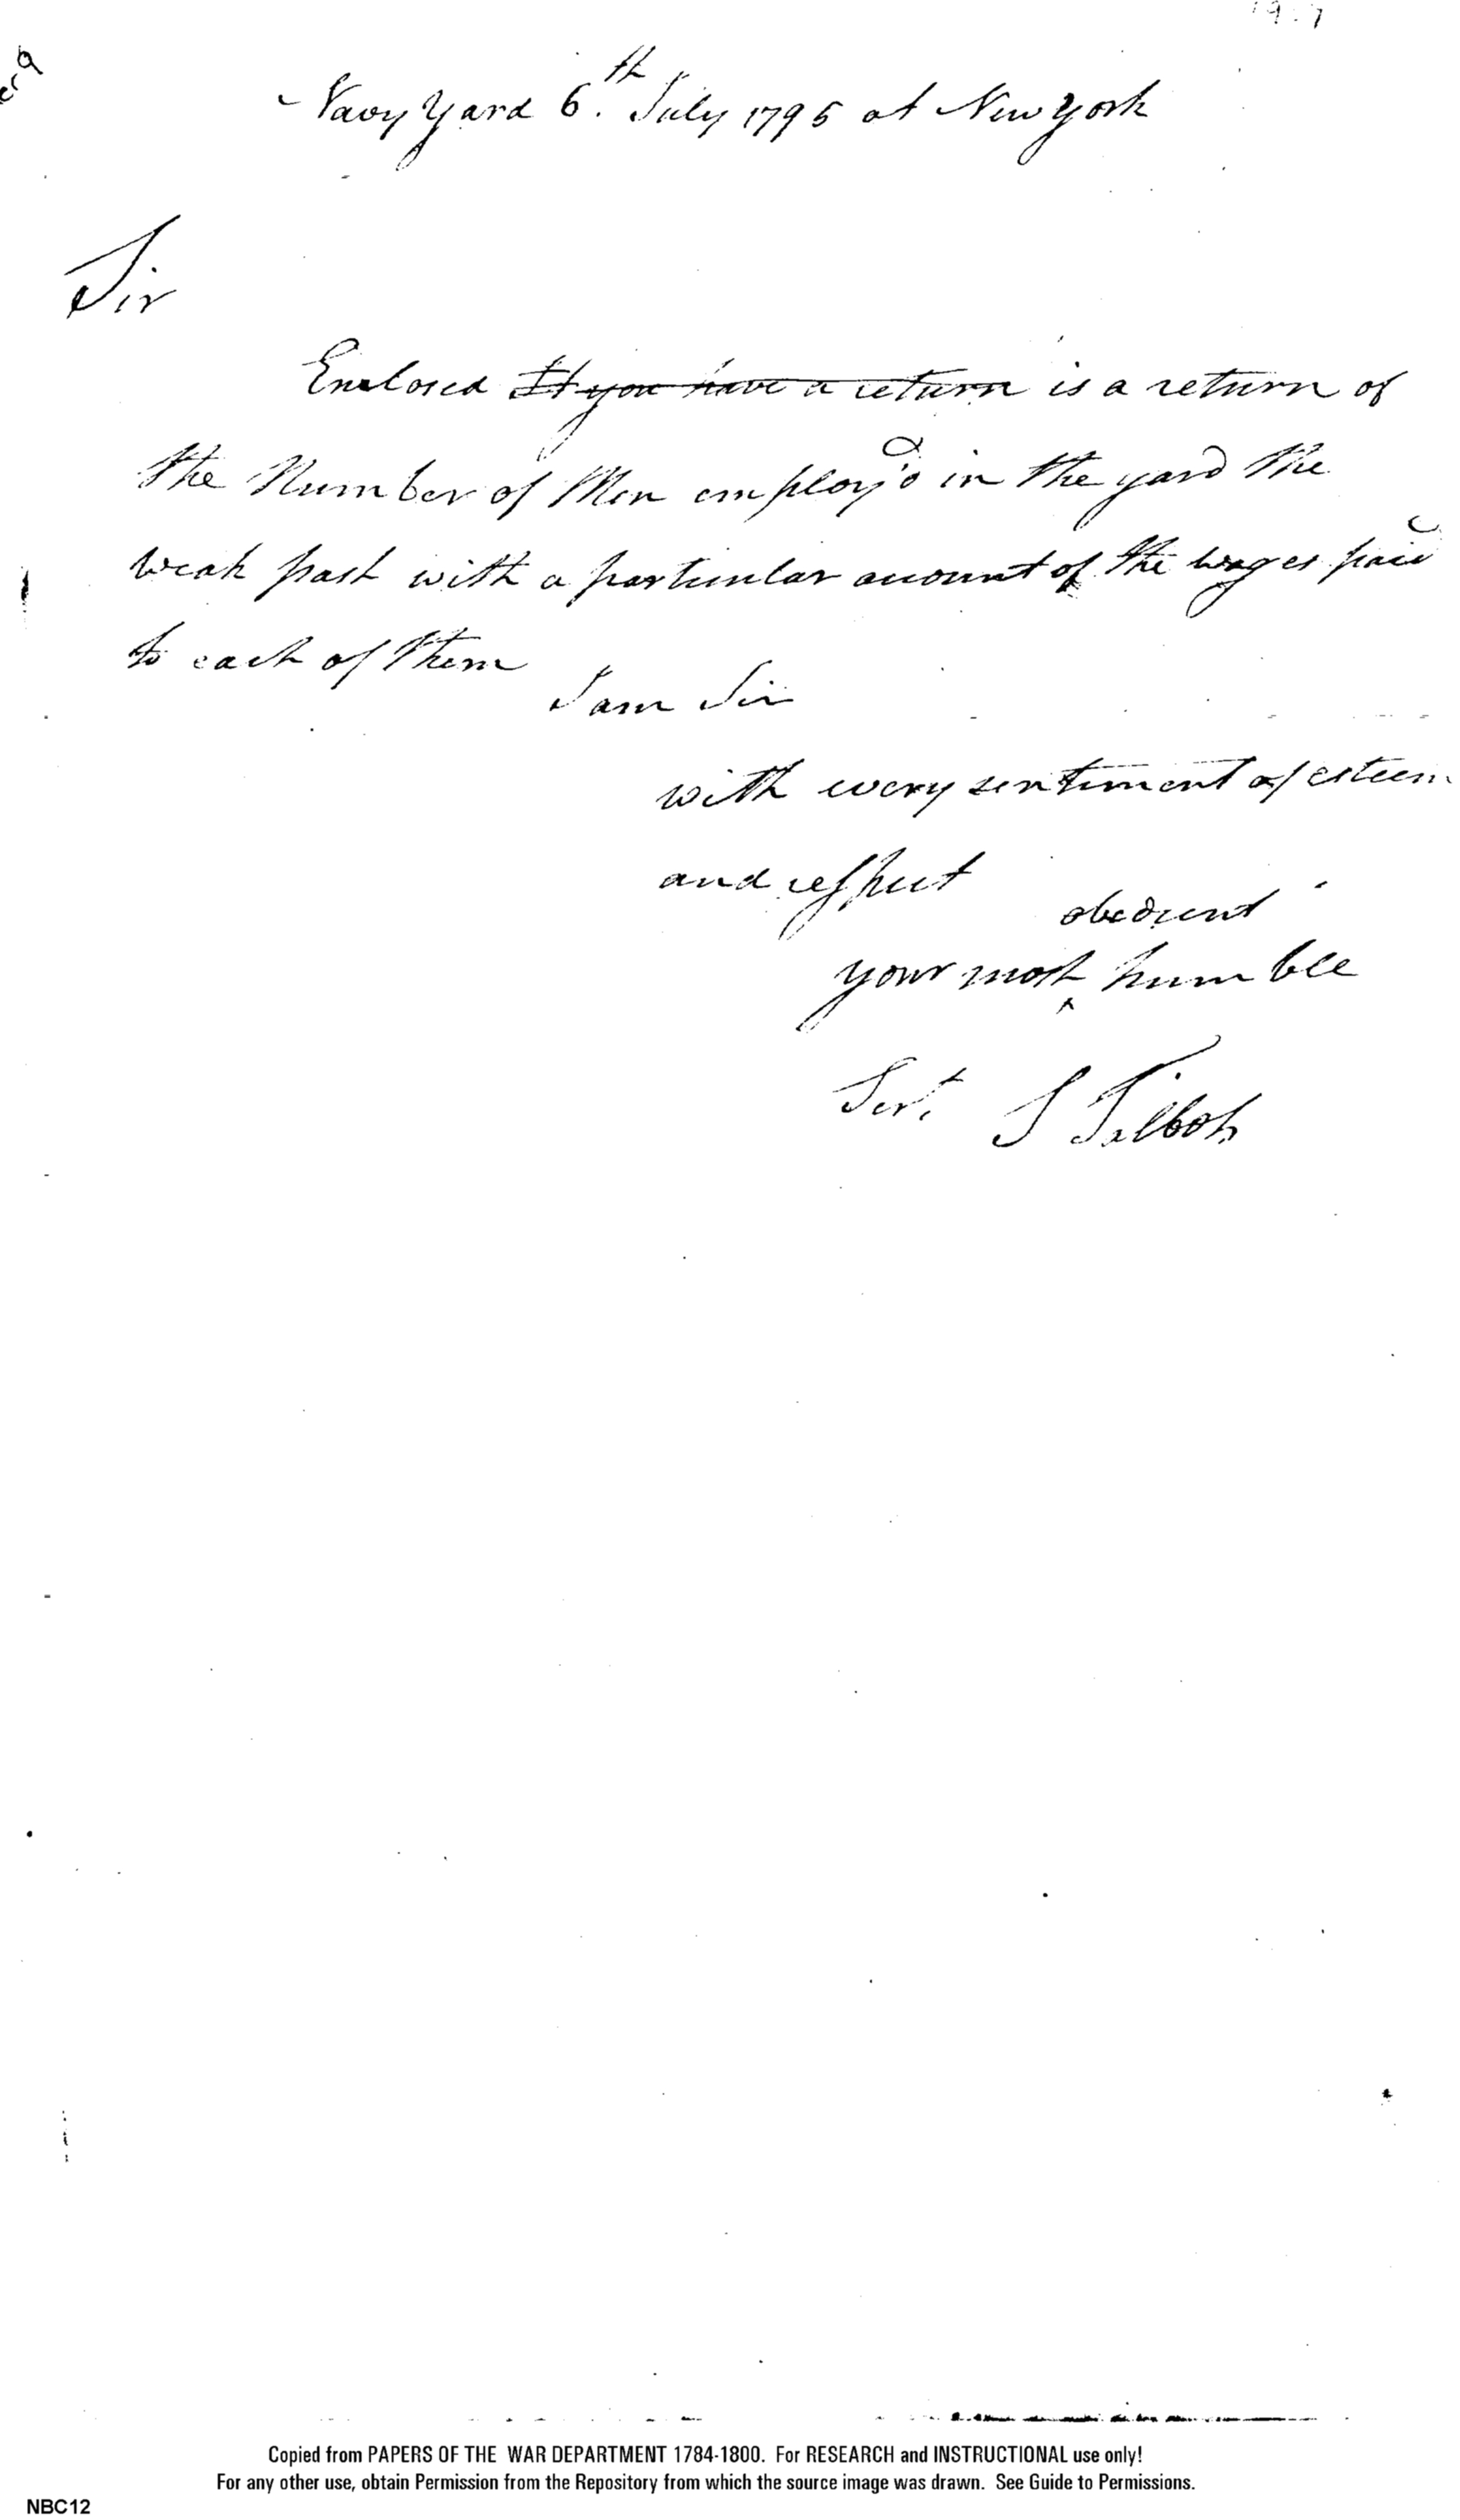 Navy Yard 6th. July 1795 at New York
Sir
Enclosed It you have a return is a return of
the Number of Men employ'd in the yard the
weak past with a particular account of the wages paid
to each of them
I am Sir
with every sentiment of esteem
and respect
obedient
your most ^ humble
Sert.
S Talbot
Copied from PAPERS OF THE WAR DEPARTMENT 1784-1800. For RESEARCH and INSTRUCTIONAL use only!
For any other use, obtain Permission from the Repository from which the source image was drawn. See Guide to Permissions.
NBC12